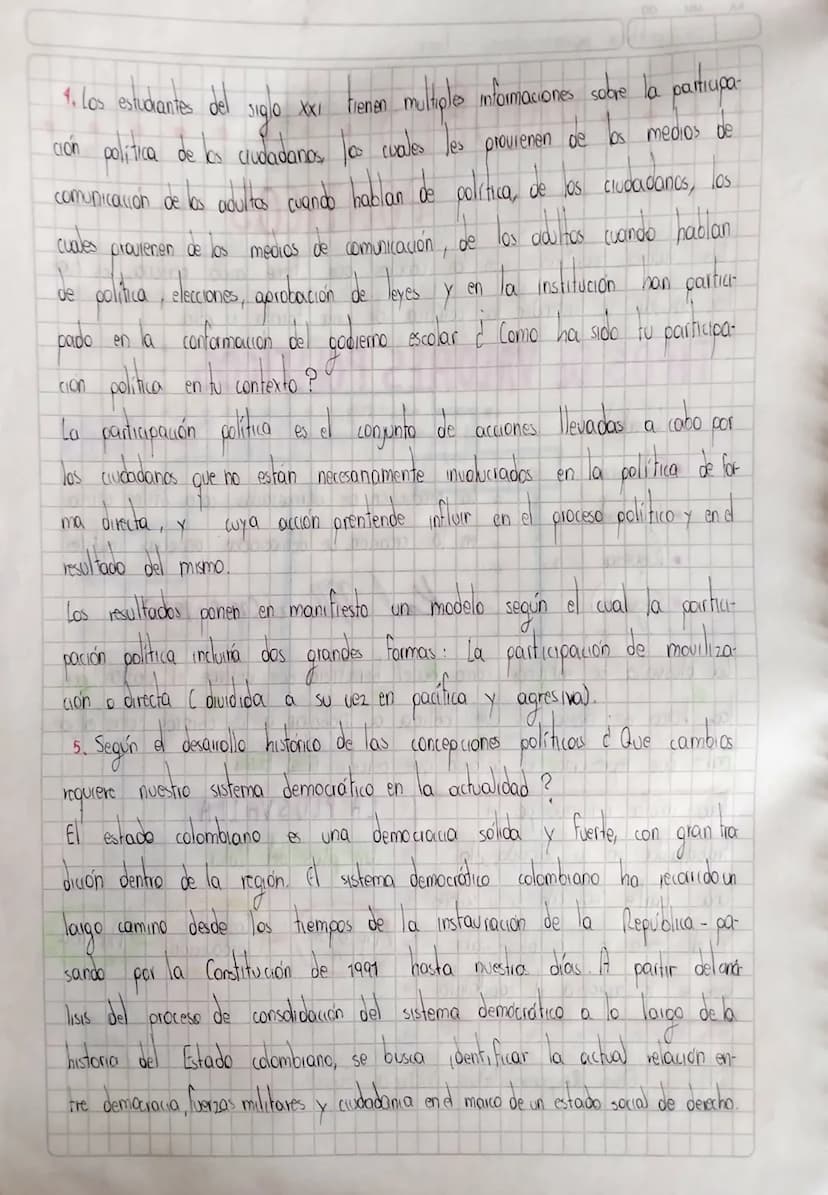 4. Los estudiantes del siglo XXI tienen multiples informaciones sobre la participa-
ción política de los ciudadanos, los cuales les provienen de los medios de
comunicación de los adultos cuando hablan de política, de los ciudadanos, los
cuales provienen de los medios de comunicación, de los adultos cuando hablan
de política, elecciones, aprobación de leyes y en la institución han partici-
pado en la conformación del gobierno escolar ¿ Como ha sido tu participa-
cion política en tu contexto?
La participación política es el conjunto de acciones llevadas a cabo por
los ciudadanos que no están necesariamente involucrados en la política de for-
ma directa, y cuya acción prentende influir en el proceso político y en el
resultado del mismo.
Los resultados ponen en manifiesto un modelo según el cual la partici-
pación política incluiría dos grandes formas: La participación de moviliza-
ción o directa (dividida a su vez en pacífica y agresiva).
5. Según el desarrollo histórico de las concepciones políticas ¿ Que cambios
requiere nuestro sistema democrático en la actualidad?
El estado colombiano es una democracia sólida y fuerte, con gran tra
dición dentro de la región. El sistema democrático colombiano ha recorrido un
largo camino desde los tiempos de la instauración de la República - pa-
sando por la Constitución de 1991 hasta nuestra días. A partir del aná
lisis del proceso de consolidación del sistema democrático a lo largo de la
historia del Estado colombiano, se busca identificar la actual relación en-
tre democracia, fuerzas militares y ciudadanía en el marco de un estado social de derecho.